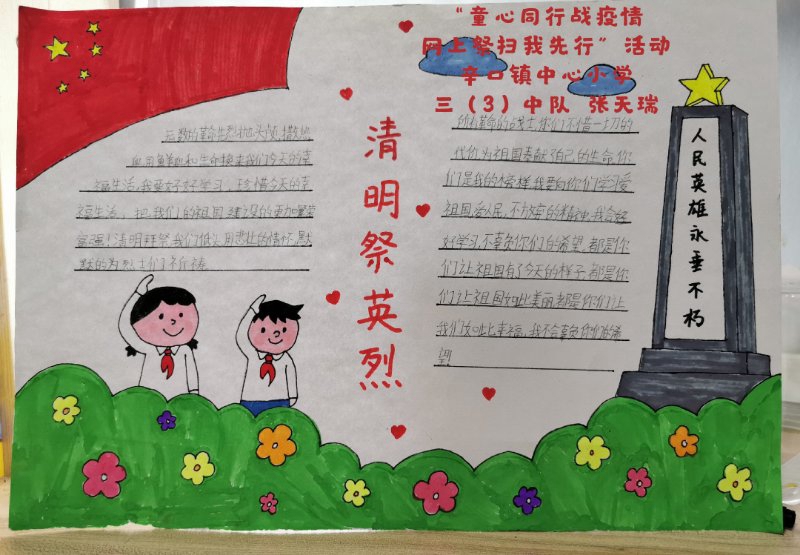 “童心同行战疫情
网上祭扫我先行”活动
辛口镇中心小学
三（3）中队 张天瑞
清明祭英烈
人民英雄永垂不朽
无数的革命先烈抛头颅,撒热
血,用鲜血和生命换来我们今天的幸
福生活,我要好好学习,珍惜今天的幸
福生活,把我们的祖国建设的更加繁荣
富强!清明祭祭,我们低头用悲壮的情怀,默
默的为烈士们祈祷。
所有革命的战士,你们不惜一切的
代价,为祖国奉献了自己的生命,你
们是我的榜样,我要向你们学习爱
祖国,爱人民,不放弃的精神,我会好
好学习,不辜负你们的希望,都是你
们让祖国有了今天的样子,都是你
们让祖国如此美丽,都是你们让
我们如此幸福,我不会辜负你们的希
望!